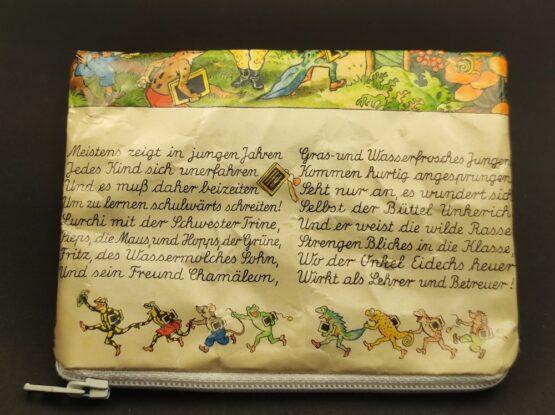 Meistens zeigt in jungen Jahren
Jedes Kind sich unerfahren
Und es muß daher beizeiten
Um zu lernen schulwärts schreiten!
Lurchi mit der Schwester Trine,
Pieps, die Maus, und Hopps, der Grüne,
Fritz, des Wassermolches Sohn,
Und sein Freund Chamäleon,
Gras- und Wasserfrosches Jungen
Kommen hurtig angesprungen
Seht nur an, es wundert sich
Selbst der Büttel Unkerich
Und er weist die wilde Rasse
Strengen Blickes in die Klasse,
Wo der Onkel Eidechs heuer
Wirkt als Lehrer und Betreuer!